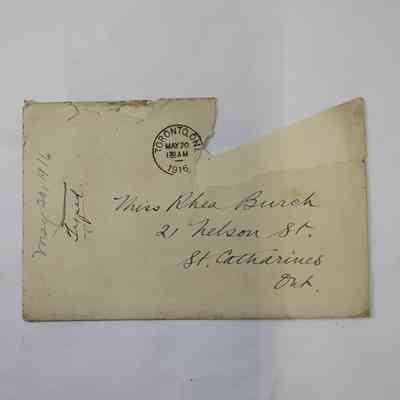 TORONTO, ONT.
MAY 20
AM
1916
Miss Rhea Burch
21 Nelson St.
St. Catharines
Ont.
May 20, 1916
Typed